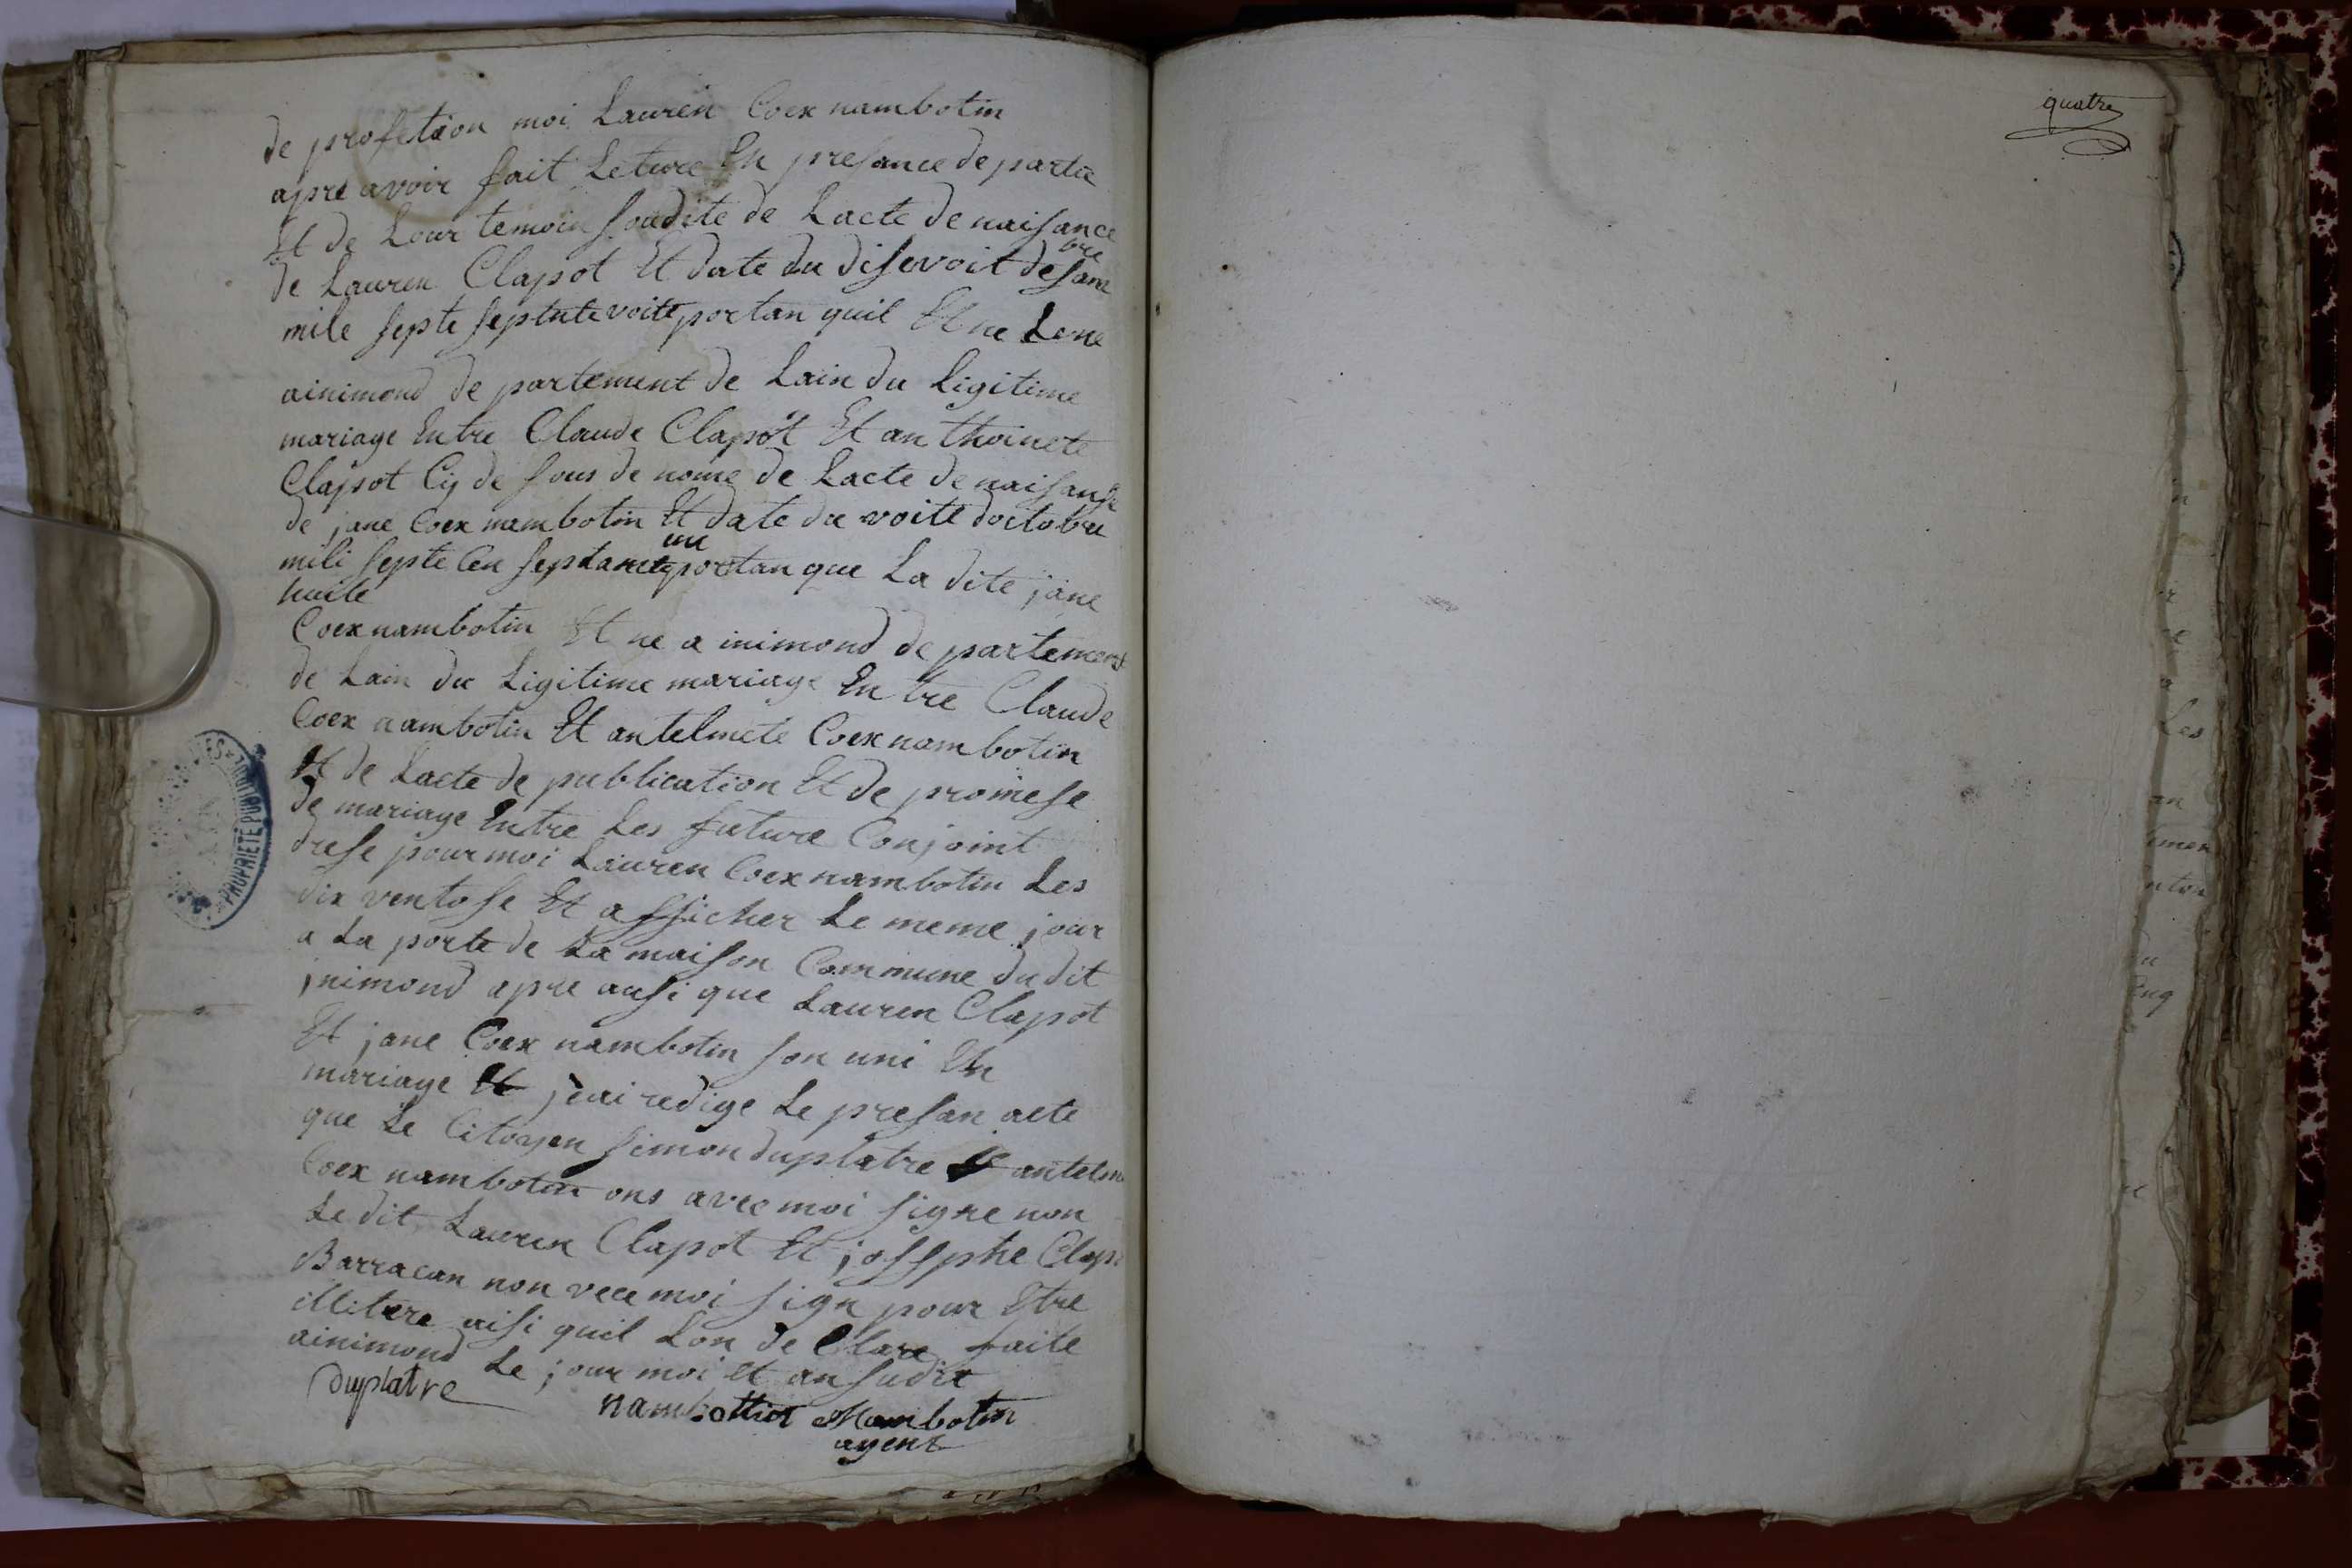 de profetion moi Lauren Coex nambotin
apre avoir fait Leture En presance de partie
Et de Lour temoin soudite de Lacte de naisance
de Lauren Clapot Et date du disevoit desambre
mile septe septente voite portan quil Et ne Lene
ainimond de partement de Lain du Ligitime
mariage Entre Claude Clapot Et an thoinete
Clapot Cy de sous de nome de Lacte de naisanse
de jane Coex nambotin Et date du voite doctobre
mile septe Cen septante une portan que La dite jane
huile
Coex nambotin Et ne a inimond de partement
de Lain du Ligitime mariage En tre Claude
Coex nambotin Et antelmete Coex nambotin
Et de Lacte de publication Et de promese
de mariage Entre Les future Conjoint
drese pour moi Lauren Coex nambotin Les
dix ventose Et afficher Le meme jour
a La porte de La maison Commune du dit
jnimond apre ausi que Lauren Clapot
Et jane Coex nambotin son uni En
mariage Et jeai redige Le presan acte
que Le Citoyen simon duplatre Et antelm
Coex nambotin ons avec moi signe non
Le dit Lauren Clapot Et josephe Clap
Barracan non vece moi sign pour Etre
illitere aisi quil Lon de Clare faite
ainimond Le jour moi et an sudit
Duplatre nambottin Nambotin
agent
quatre
PROPRIÉTÉ PUBLIQUE